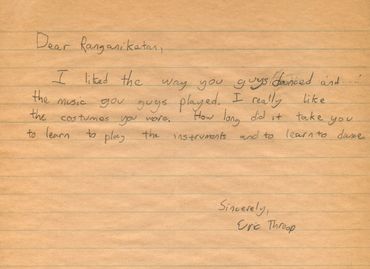 Dear Ranganiketan,
I liked the way you guys danced and
the music you guys played. I really like
the costumes you wore. How long did it take you
to learn to play the instruments and to learn to dance
Sincerely,
Eric Throop